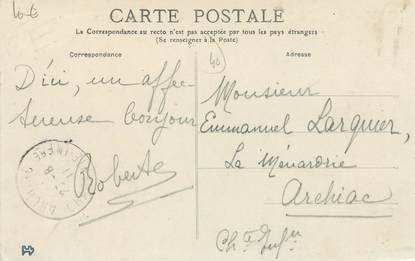 10 €
CARTE POSTALE
La Correspondance au recto n'est pas acceptée par tous les pays étrangers
(Se renseigner à la Poste)
Correspondance
Adresse
40
D'ici, un affec-
tueuse bonjour
Roberte
Monsieur
Emmanuel Larquier,
La Ménardrie
Archiac
Ch.te Infre